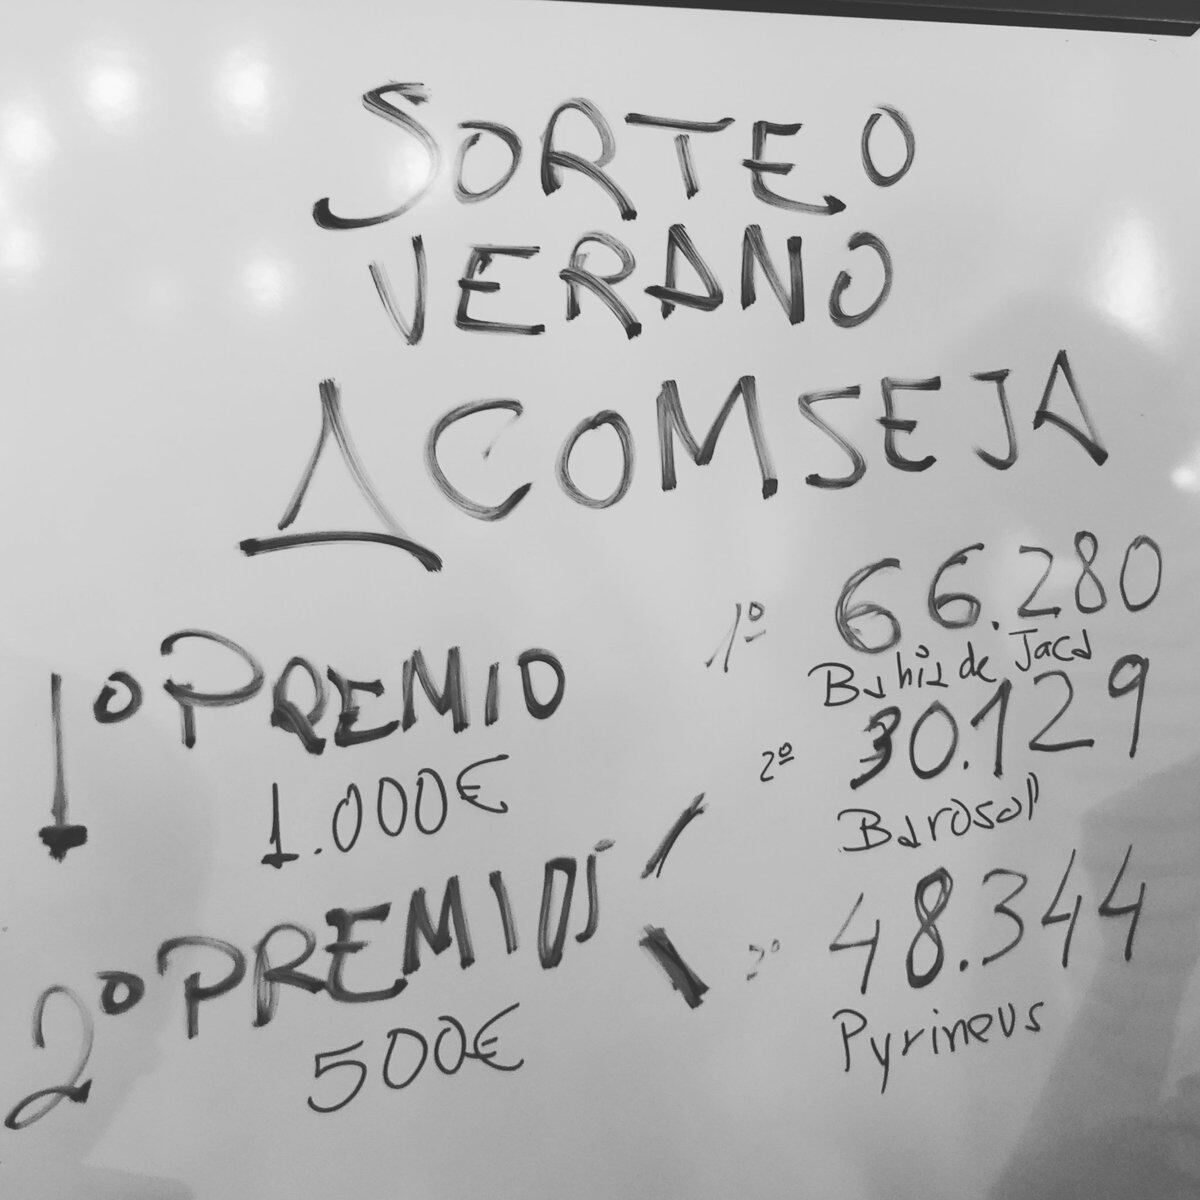 SORTEO
VERANO
ACOMSEJA
1º PREMIO
1.000€
2º PREMIOS
500€
1º 66.280
Bahia de Jaca
2º 30.129
Barosol
2º 48.344
Pyrineus